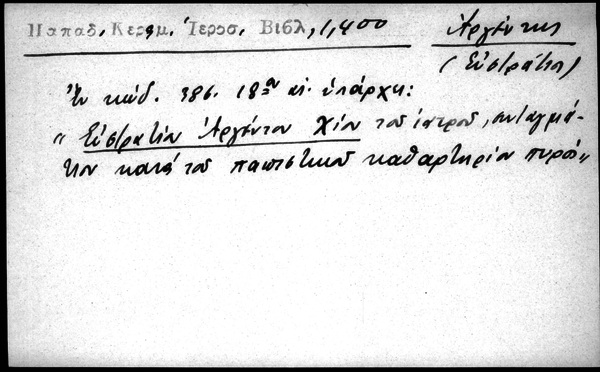 Παπαδ. Κεραμ. Ἱεροσ. Βιβλ, 1,400
Ἀργέντης
(Εὐστράτιος)
Ἐν κώδ. 386. 18ου αἰ. ὑπάρχει:
"Εὐστρατίου Ἀργέντου Χίου τοῦ ἰατροῦ, συνταγμά-
τιον κατὰ τοῦ παπιστικοῦ καθαρτηρίου πυρός"